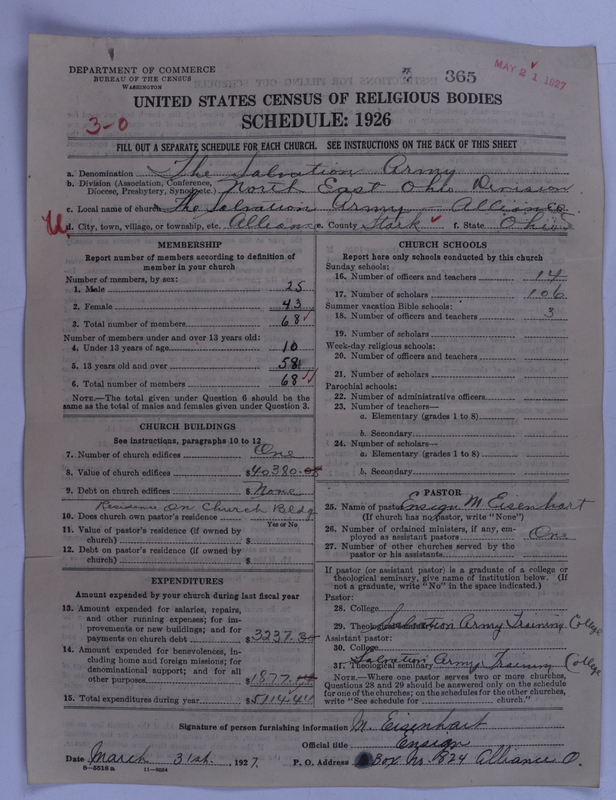 DEPARTMENT OF COMMERCE
BUREAU OF THE CENSUS
WASHINGTON
365
MAY 21 1927
UNITED STATES CENSUS OF RELIGIOUS BODIES
3-0
SCHEDULE: 1926
FILL OUT A SEPARATE SCHEDULE FOR EACH CHURCH. SEE INSTRUCTIONS ON THE BACK OF THIS SHEET
a. Denomination The Salvation Army
b. Division (Association, Conference, Diocese, Presbytery, Synod, etc.) North East Ohio Division
c. Local name of church The Salvation Army - Alliance
d. City, town, village, or township, etc. Alliance e. County Stark f. State Ohio
MEMBERSHIP
Report number of members according to definition of
member in your church
Number of members, by sex:
1. Male 25
2. Female 43
3. Total number of members 68
Number of members under and over 13 years old:
4. Under 13 years of age 10
5. 13 years old and over 58
6. Total number of members 68
NOTE.—The total given under Question 6 should be the
same as the total of males and females given under Question 3.
CHURCH BUILDINGS
See instructions, paragraphs 10 to 12
7. Number of church edifices One
8. Value of church edifices $40380.
9. Debt on church edifices $None
Residence on Church Bldg
10. Does church own pastor's residence
Yes or No
11. Value of pastor's residence (if owned by
church) $
12. Debt on pastor's residence (if owned by
church) $
EXPENDITURES
Amount expended by your church during last fiscal year
13. Amount expended for salaries, repairs,
and other running expenses; for im-
provements or new buildings; and for
payments on church debt $3237.
14. Amount expended for benevolences, in-
cluding home and foreign missions; for
denominational support; and for all
other purposes $1877.
15. Total expenditures during year $5114.44
CHURCH SCHOOLS
Report here only schools conducted by this church
Sunday schools:
16. Number of officers and teachers 14
17. Number of scholars 106
Summer vacation Bible schools:
18. Number of officers and teachers 3
19. Number of scholars
Week-day religious schools:
20. Number of officers and teachers
21. Number of scholars
Parochial schools:
22. Number of administrative officers
23. Number of teachers—
a. Elementary (grades 1 to 8)
b. Secondary
24. Number of scholars—
a. Elementary (grades 1 to 8)
b. Secondary
PASTOR
25. Name of pastor Ensign M Eisenhart
(If church has no pastor, write "None")
26. Number of ordained ministers, if any, em-
ployed as assistant pastors One
27. Number of other churches served by the
pastor or his assistants
If pastor (or assistant pastor) is a graduate of a college or
theological seminary, give name of institution below. (If
not a graduate, write "No" in the space indicated.)
Pastor:
28. College
29. Theological seminary Salvation Army Training College
Assistant pastor:
30. College
31. Theological seminary Salvation Army Training College
NOTE.—Where one pastor serves two or more churches,
Questions 28 and 29 should be answered only on the schedule
for one of the churches; on the schedules for the other churches,
write "See schedule for church."
Signature of person furnishing information M. Eisenhart
Official title Ensign
Date March 31st, 1927. P. O. Address Box No. 824 Alliance O.
8—5518a 11—9024